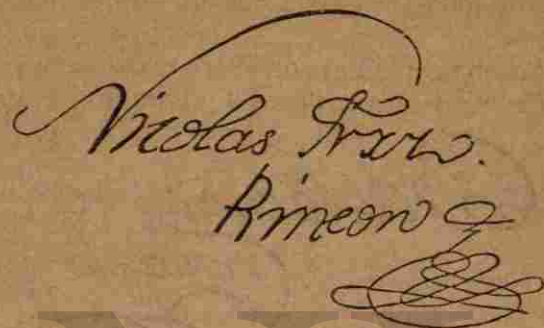 Nicolas
Rincon